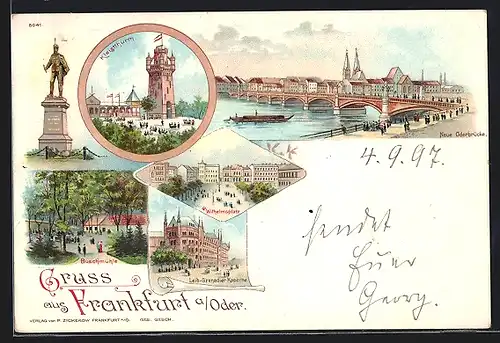 8041.
Kleistturm
Neue Oderbrücke.
4.9.97.
Wilhelmsplatz
sendet
Euer
Georg.
Buschmühle
Leib-Grenadier Kaserne
Gruss
aus Frankfurt a/Oder.
VERLAG von P. ZICKEROW FRANKFURT a/O. GES. GESCH.